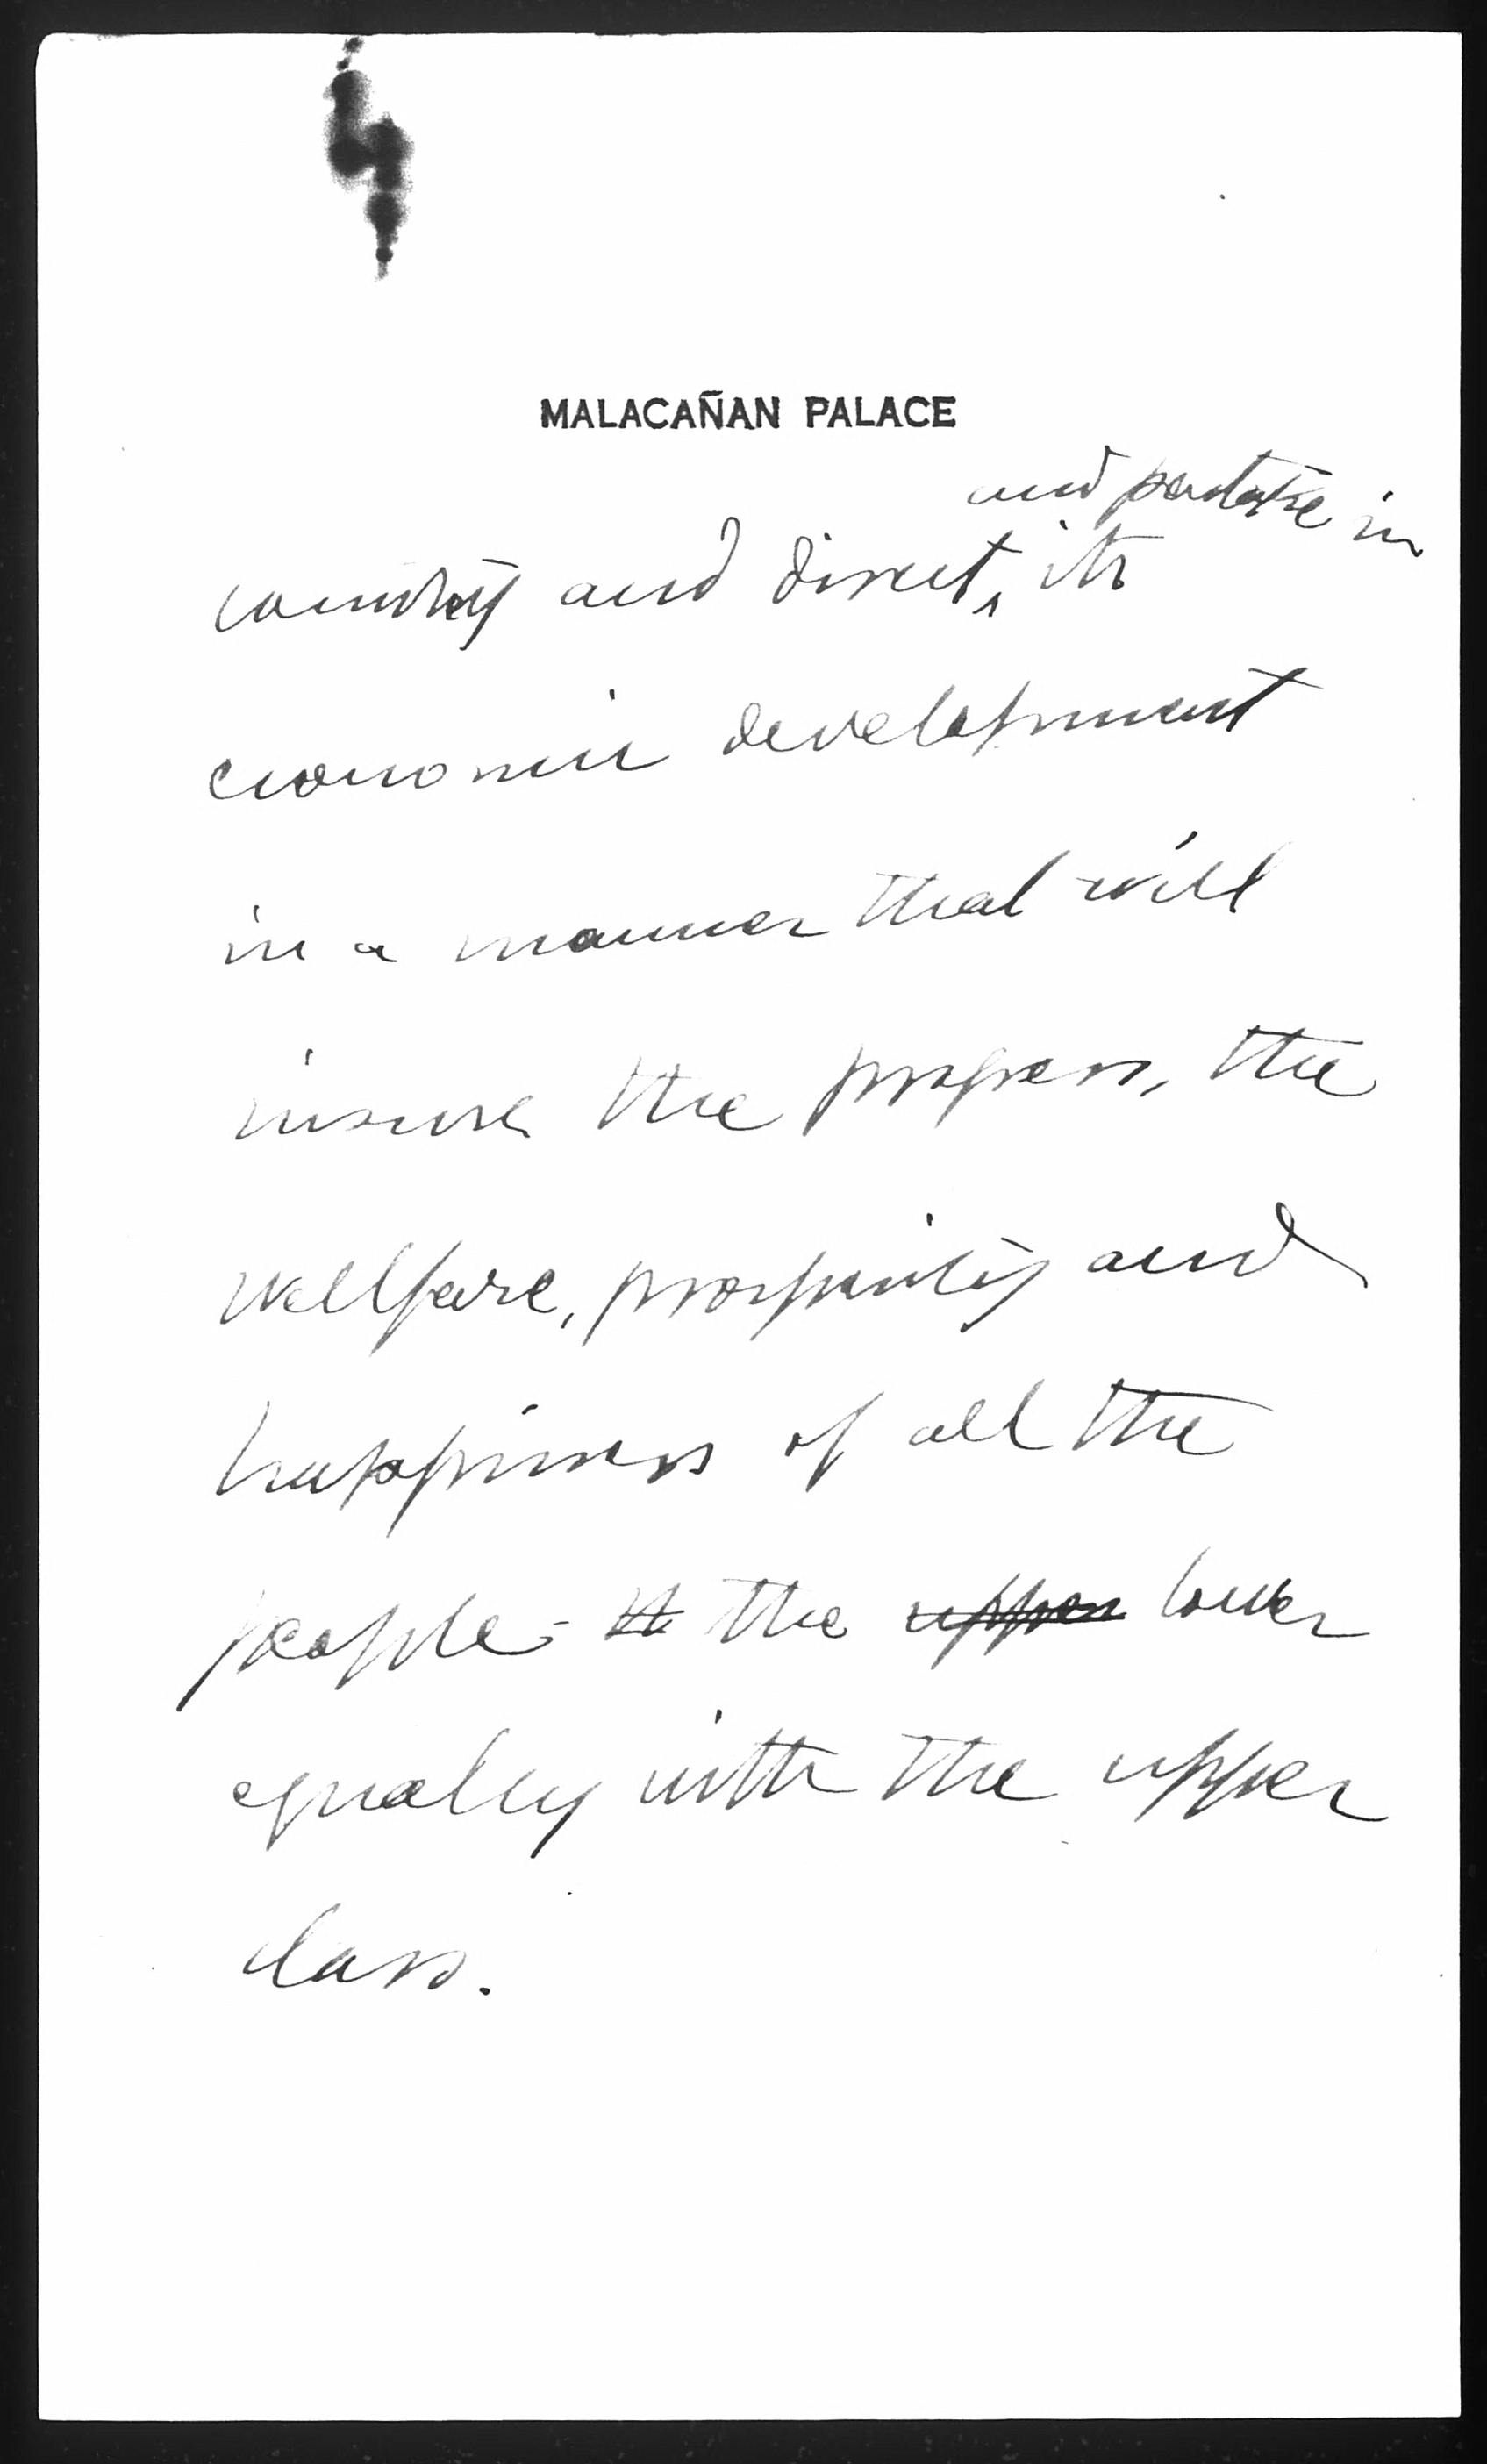 MALACAÑAN PALACE
and partake in
country and direct, its
economic development
in a manner that will
insure the progress, the
wellfare, prosperity and
happiness of all the
people - tt the upper lower
equally with the upper
class.